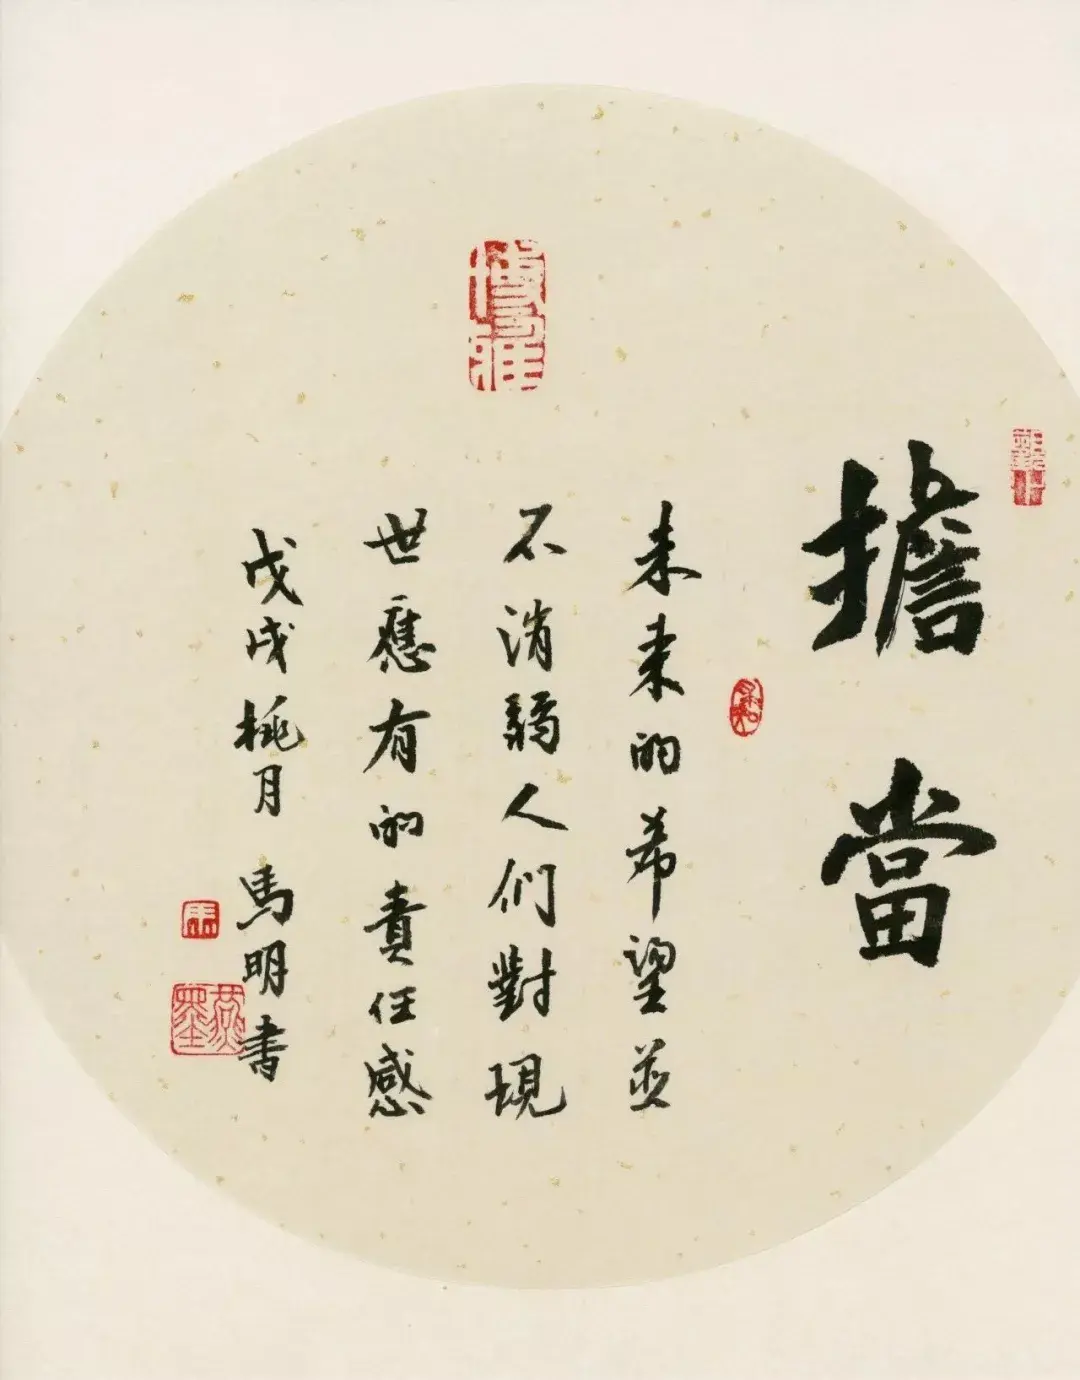 擔當
未来的希望並
不消弱人们對現
世應有的責任感
戊戌桃月 馬明書
博雅
馬